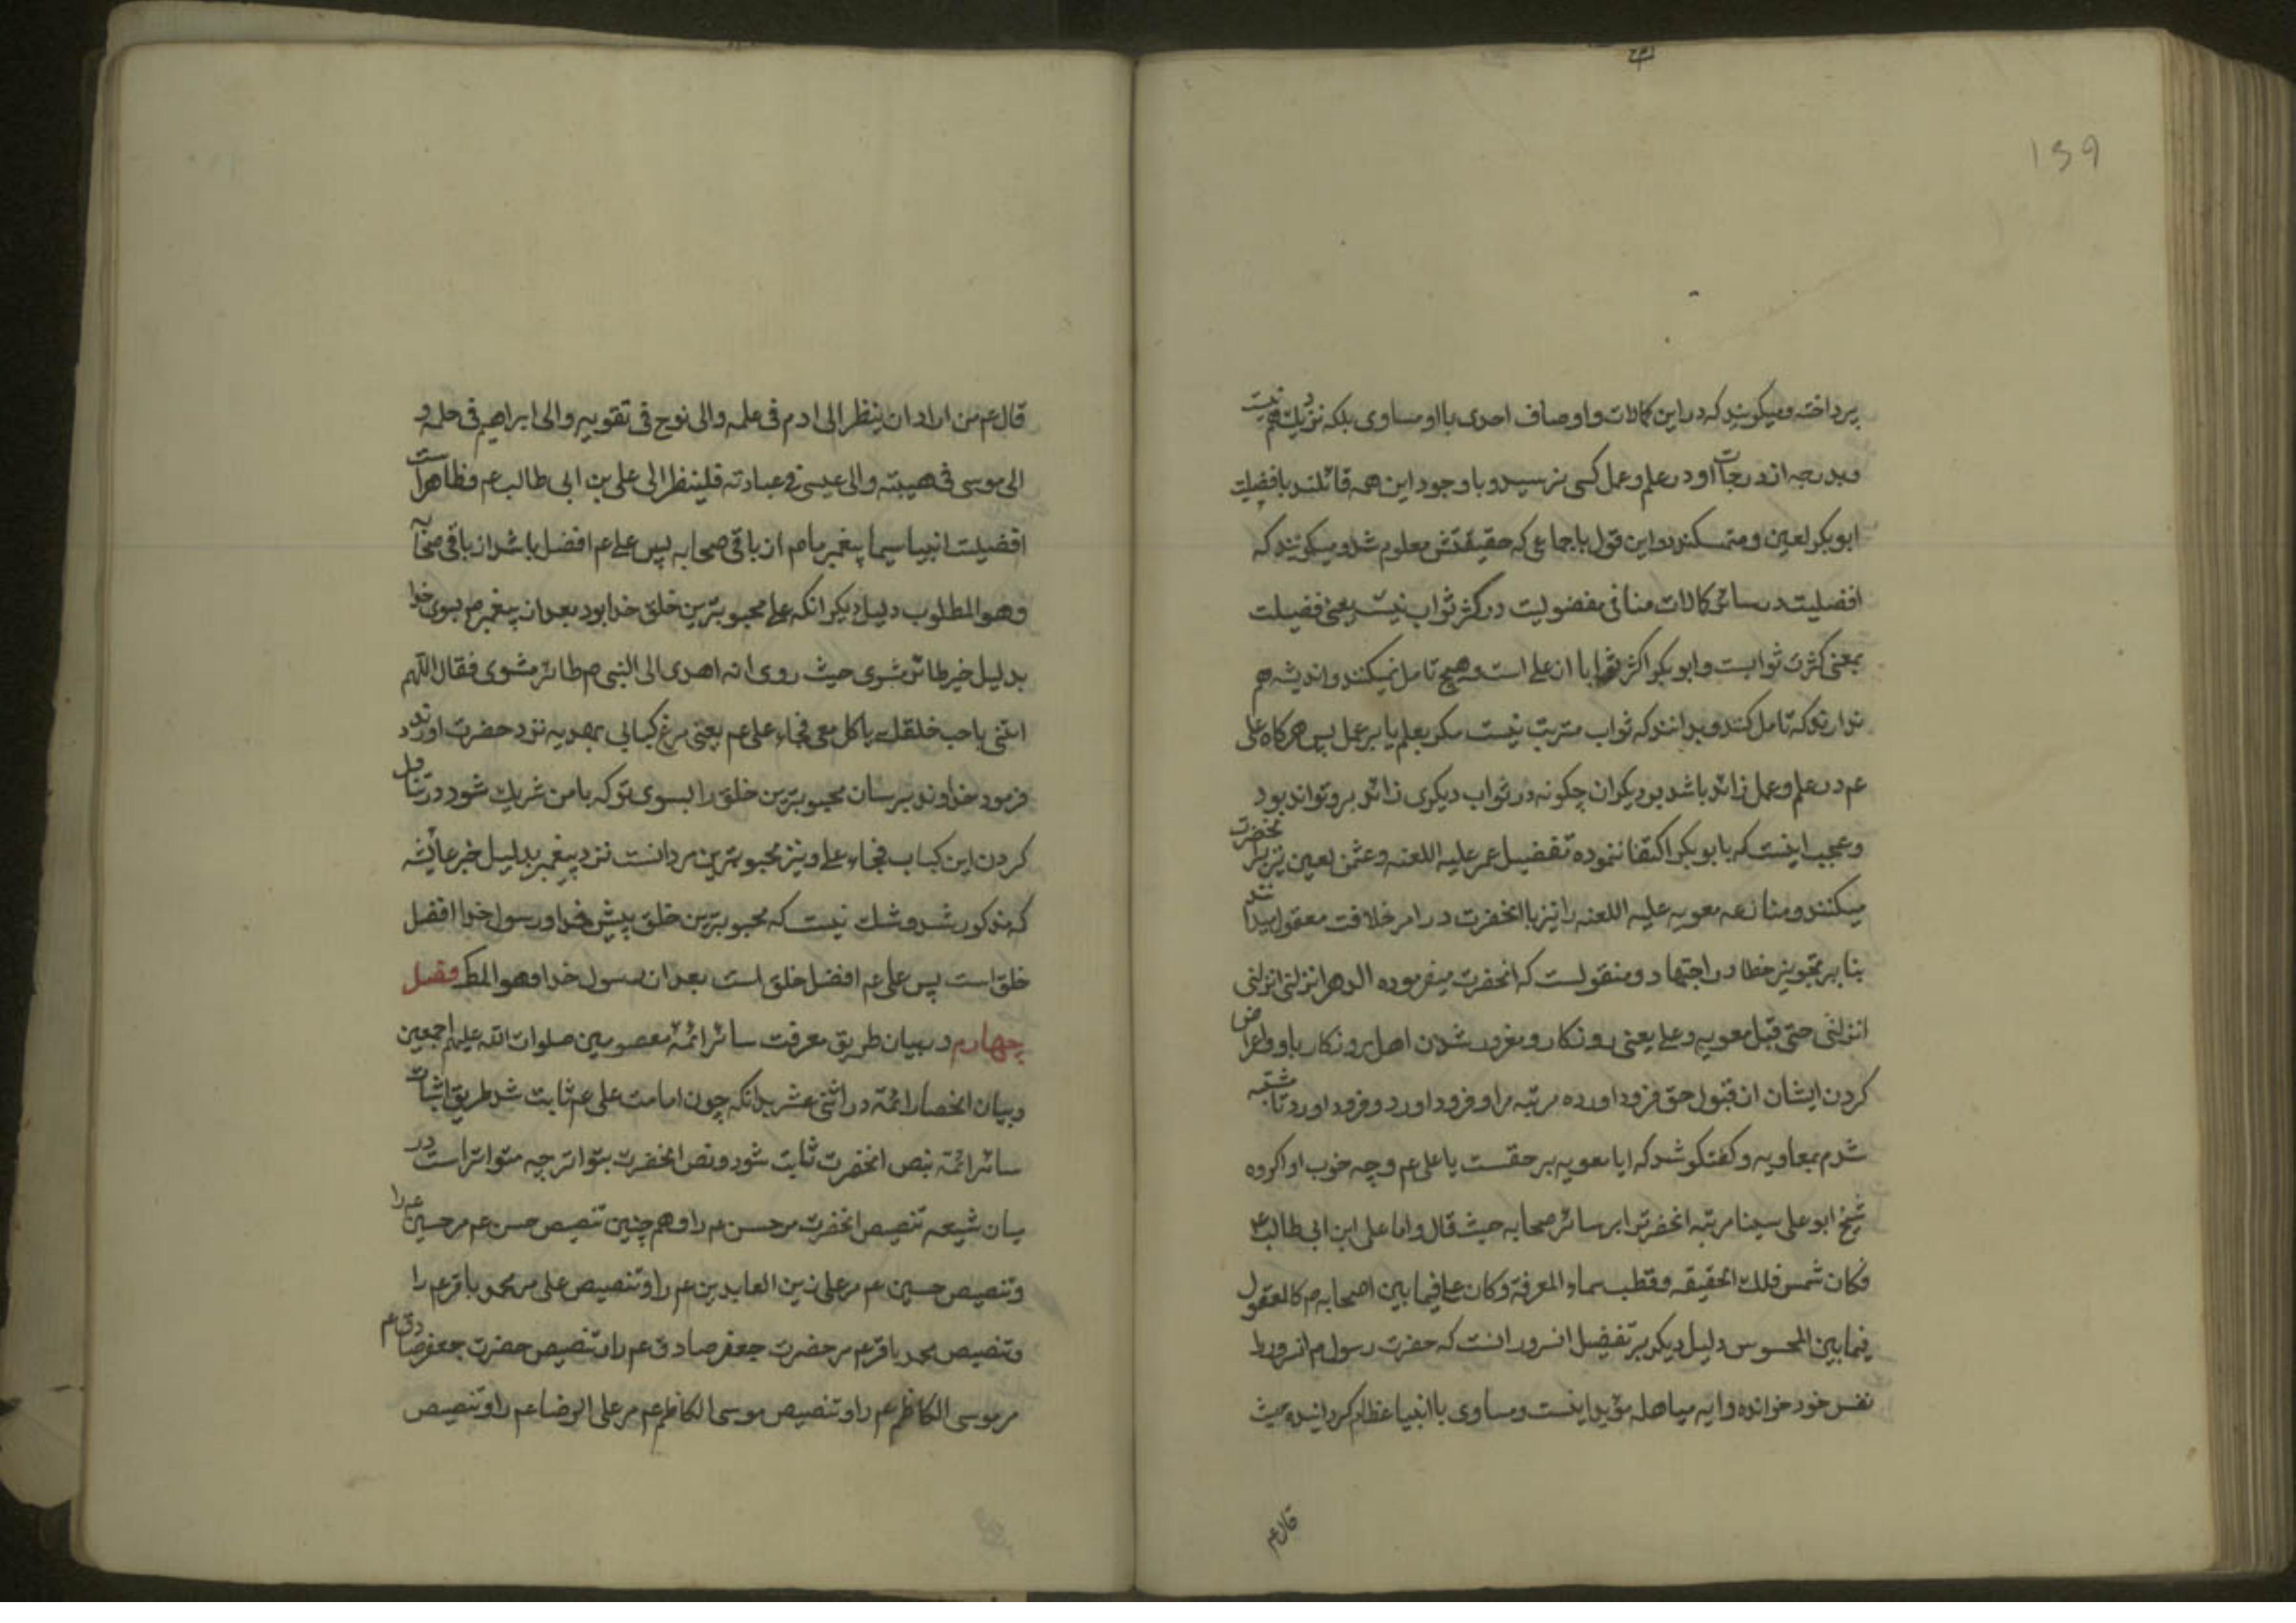 139
پرداخته و میکویند که در این کمالات و اوصاف احدی با او مساوی بلکه نزدیك هم نیست
و بدرجه از درجات او در علم و عمل کسی نرسیده و با وجود این همه قائلند بافضلیت
ابوبکر لعین و متمسکند در این قول باجماعی که حقیقتش معلوم شد و میکویند که
افضلیت در سائر کمالات منافی مفضولیت در کثرت ثواب نیست یعنی فضیلت
بمعنی کثرت ثوابست و ابوبکر اکثر ثوابا از علی است و هیچ تامل نمیکنند و اندیشه هم
ندارند که تامل کنند و بدانند که ثواب مترتب نیست مکر بعلم یا بر عمل پس هرکاه علی
عم در علم و عمل زائد باشد بر دیکران چکونه در ثواب دیکری زائد بر و تواند بود
و عجب اینست که بابوبکر اکتفا ننموده تفضیل عمر علیه اللعنه و عثمن لعین نیز بر انحضرت
میکنند و منازعه معویه علیه اللعنه را نیز با انحضرت در امر خلافت معقول میدانند
بنا بر تجویز خطا در اجتهاد و منقولست که انحضرت میفرموده الدهر انزلنی انزلنی
انزلنی حتی قیل معویه و علی یعنی روزکار و مغرور شدن اهل روزکار باو و اعراض
کردن ایشان از قبول حق فرود اورده مرتبه مرا و فرود اورد و فرود اورد تا مشتبه
شدم بمعاویه و کفتکو شد که ایا معویه بر حقست یا علی عم و چه خوب ادا کرده
شیخ ابو علی سینا مرتبه انحضرترا بر سائر صحابه حیث قال و اما علی ابن ابی طالب ع
فکان شمس فلك الحقیقه و قطب سماء المعرفة و کان علی فیما بین اصحابه م کالمعقول
فیما بین المحسوس دلیل دیکر بر تفضیل انسرور انست که حضرت رسول م انسرور را
نفس خود خوانده و ایه مباهله مؤید اینست و مساوی با انبیا عظام کردانیده حیث
قال عم
قال عم من اراد ان ینظر الی ادم فی علمه و الی نوح فی تقویه و الی ابراهیم فی حلمه و
الی موسی فی هیبته و الی عیسی فی عبادته فلینظر الی علی بن ابی طالب عم و ظاهر است
افضلیت انبیا سیما پیغمبر ما م از باقی صحابه پس علی عم افضل باشد از باقی صحابه
و هو المطلوب دلیل دیکر انکه علی محبوبترین خلق خدا بود بعد از پیغمبر م بسوی خدا
بدلیل خبر طائر مشوی حیث روی انه اهدی الی النبی م طائر مشوی فقال اللهم
ائتنی باحب خلقك یاکل معی فجاء علی عم یعنی مرغ کبابی بهدیه نزد حضرت اوردند
فرمود خداوند برسان محبوبترین خلق را بسوی تو که با من شریك شود در تناول
کردن این کباب فجاء علی و نیز محبوبترین مردانست نزد پیغمبر بدلیل خبر عائشه
که مذکور شد و شك نیست که محبوبترین خلق پیش خدا و رسول خدا افضل
خلق است پس علی عم افضل خلق است بعد از رسول خدا و هو المط فصل
چهارم در بیان طریق معرفت سائر ائمه معصومین صلوات الله علیهم اجمعین
و بیان انحصار ائمة در اثنی عشر بدانکه چون امامت علی عم ثابت شد طریق اثبات
سائر ائمة بنص انحضرت ثابت شود و نص انحضرت بتواتر چه متواتر است در
میان شیعه تنصیص انحضرت مر حسن عم را و هم چنین تنصیص حسن عم مر حسین عم را
و تنصیص حسین عم مر علی زین العابدین عم را و تنصیص علی مر محمد باقر عم را
و تنصیص محمد باقر عم مر حضرت جعفر صادق عم را و تنصیص حضرت جعفر صادق عم
مر موسی الکاظم عم را و تنصیص موسی الکاظم عم مر علی الرضا عم را و تنصیص